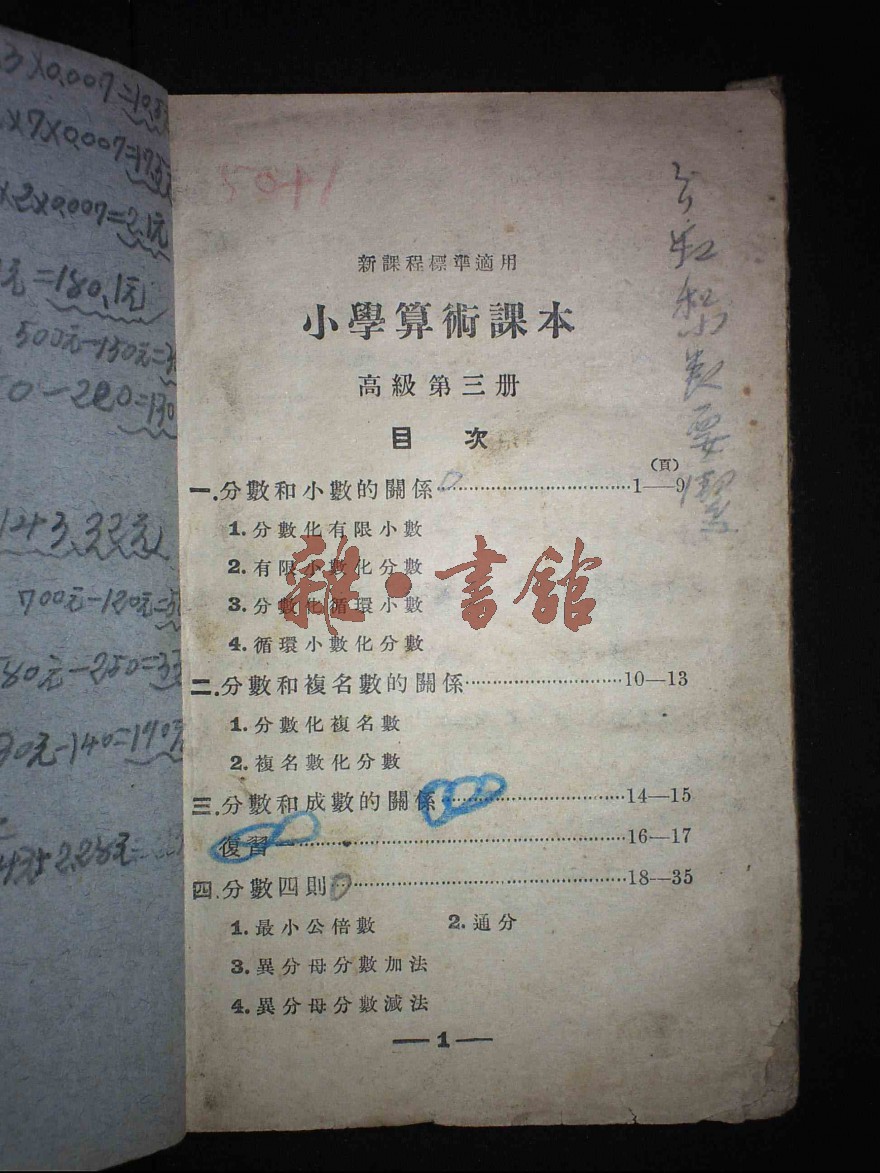 3×0.007=10.5
×7×0.007=17.5元
×2×0.007=2.1元
元=180.1元
500元-150元=3
0-220=130
143.33元
700元-120元=5
80元-250=33
30元-140=190元
2.28元=
50+1
新課程標準適用
小學算術課本
高級第三册
目 次
(頁)
一.分數和小數的關係……………………………1—9
1.分數化有限小數
2.有限小數化分數
3.分數化循環小數
4.循環小數化分數
二.分數和複名數的關係………………………10—13
1.分數化複名數
2.複名數化分數
三.分數和成數的關係…………………………14—15
復習……………………………………………16—17
四.分數四則……………………………………18—35
1.最小公倍數 2.通分
3.異分母分數加法
4.異分母分數減法
—1—
雜·書館